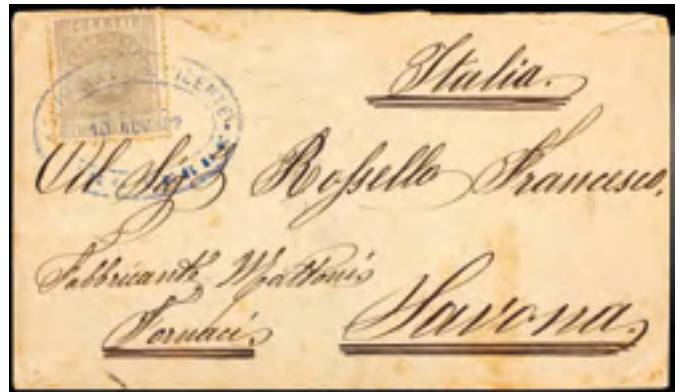 CORREIO
Italia.
All Sigr Rossello Francesco,
Fabbricante Mattonis
Fornaci.
Savona.